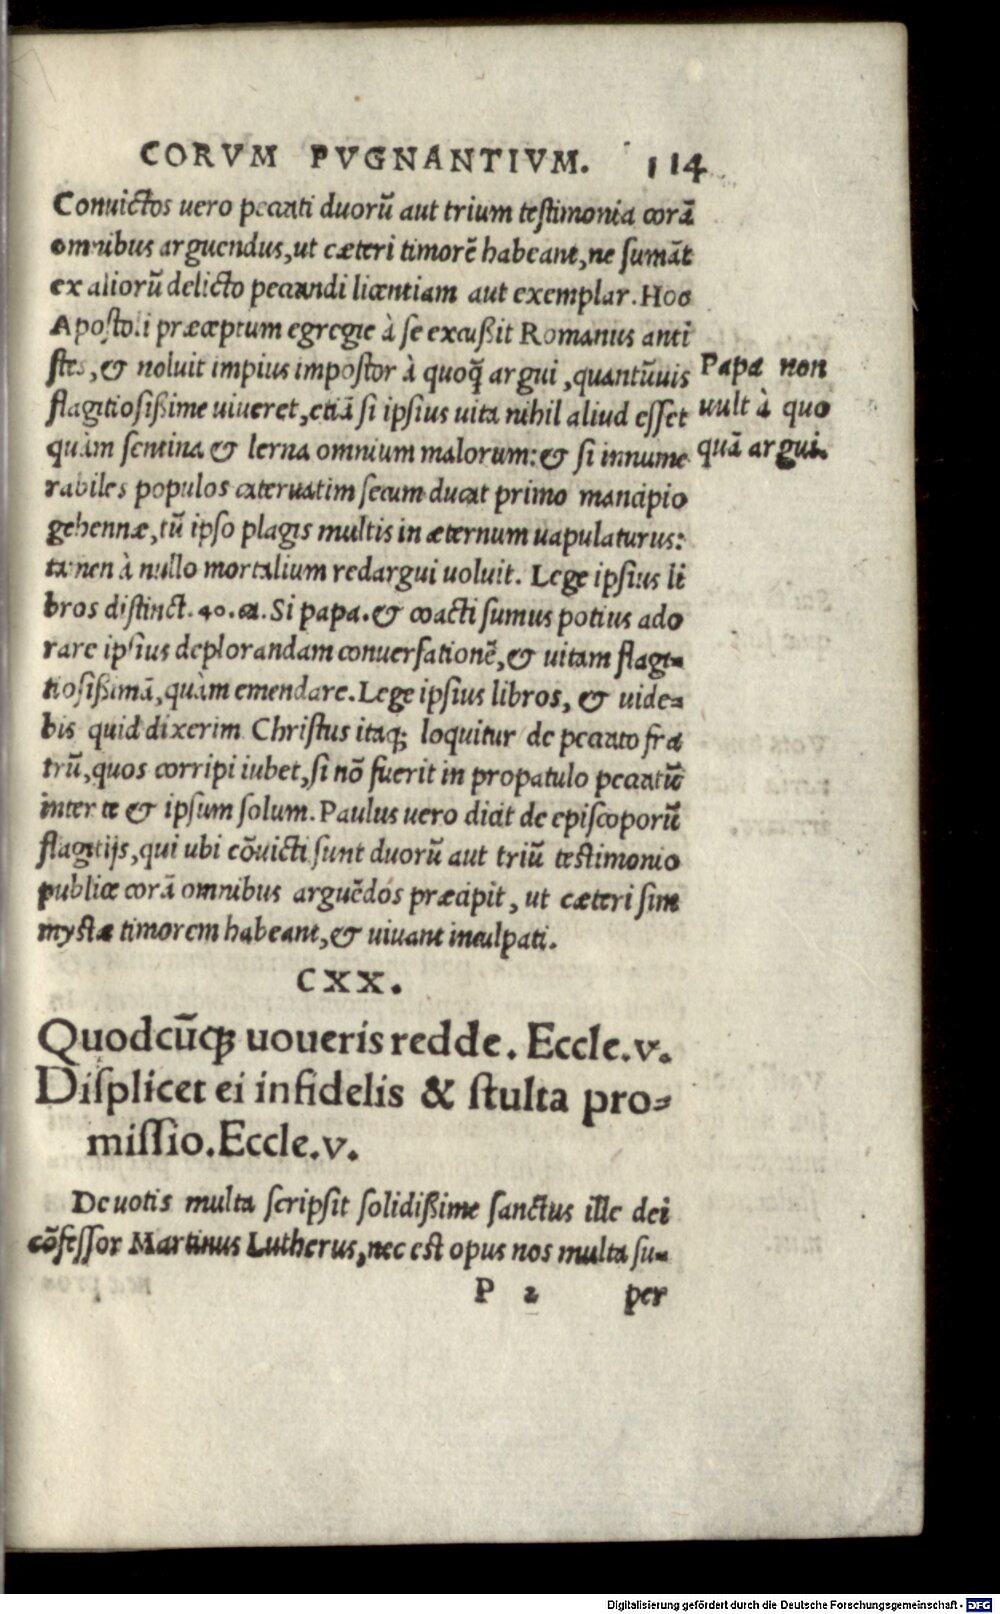 CORVM PVGNANTIVM. 114
Conuictos uero peccati duorũ aut trium testimonia corã
omnibus arguendus, ut cæteri timorẽ habeant, ne sumãt
ex aliorũ delicto peccandi licentiam aut exemplar. Hoc
Apostoli præceptum egregie à se excußit Romanus anti
stes, & noluit impius impostor à quoq̃ argui, quantũuis
flagitiosißime uiueret, etiã si ipsius uita nihil aliud esset
quàm sentina & lerna omnium malorum: & si innume
rabiles populos cateruatim secum ducat primo mancipio
gehennæ, tũ ipso plagis multis in æternum uapulaturus:
tamen à nullo mortalium redargui uoluit. Lege ipsius li
bros distinct. 40. ca. Si papa. & coacti sumus potius ado
rare ipsius deplorandam conuersationẽ, & uitam flagi-
tiosißimã, quàm emendare. Lege ipsius libros, & uide-
bis quid dixerim Christus itaq; loquitur de peccato fra
trũ, quos corripi iubet, si nõ fuerit in propatulo peccatũ
inter te & ipsum solum. Paulus uero dicit de episcoporũ
flagitijs, qui ubi cõuicti sunt duorũ aut triũ testimonio
publice corã omnibus arguẽdos præcipit, ut cæteri sim
mystæ timorem habeant, & uiuant inculpati.
Papa non
uult à quo
quã argui.
CXX.
Quodcũq; uoueris redde. Eccle. v.
Displicet ei infidelis & stulta pro-
missio. Eccle. v.
De uotis multa scripsit solidißime sanctus ille dei
cõfessor Martinus Lutherus, nec est opus nos multa su-
P 2 per
Digitalisierung gefördert durch die Deutsche Forschungsgemeinschaft - DFG